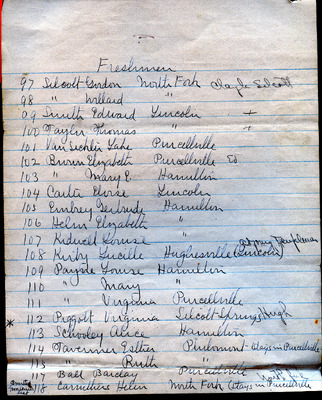 Freshmen
97 Silcott Gordon North Fork Clayte Silcott
98 " Willard "
99 Smith Edward Lincoln +
100 Taylor Thomas " +
101 Van Sickler Lake Purcellville
102 Brown Elizabeth Purcellville Ed
103 " Mary E Hamilton
104 Carter Eloise Lincoln
105 Embrey Gertrude Hamilton
106 Helm Elizabeth "
107 Kidwell Louise "
108 Kirby Lucille Hughesville (Lincoln)
109 Payne Louise Hamilton
110 " Mary "
111 " Virginia Purcellville
* 112 Piggott Virginia Silcott Springs Hugh
113 Schooley Alice Hamilton
114 Tavenner Esther Philomont - stays in Purcellville
115 " Ruth "
117 Ball Barclay Purcellville
118 Carruthers Helen North Fork (stays in Purcellville